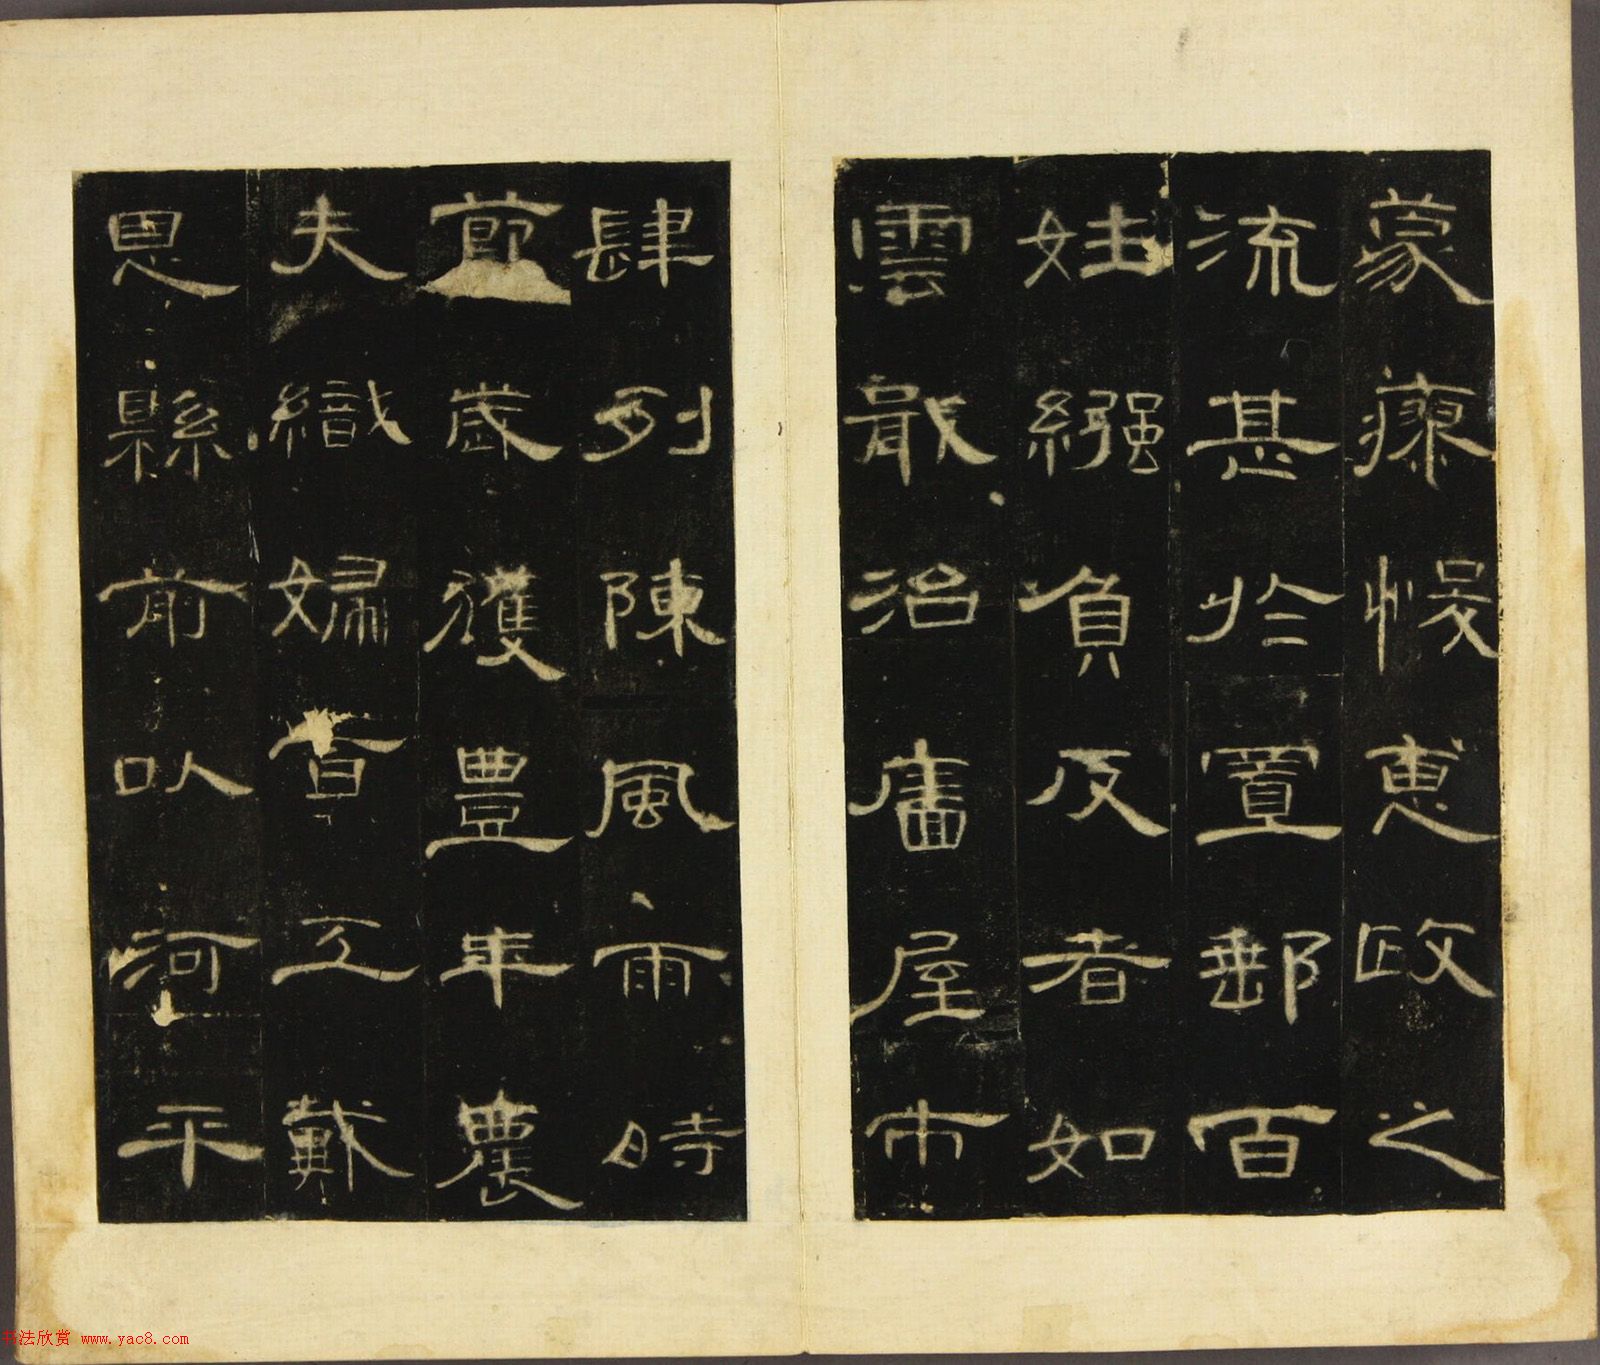 蒙瘵悞恵政之
流甚扵置郵百
姓繈負反者如
雲戢治廧屋市
肆列陳風雨時
節歲獲豊年農
夫織婦百工戴
恩縣前以河平
书法欣赏 www.yac8.com